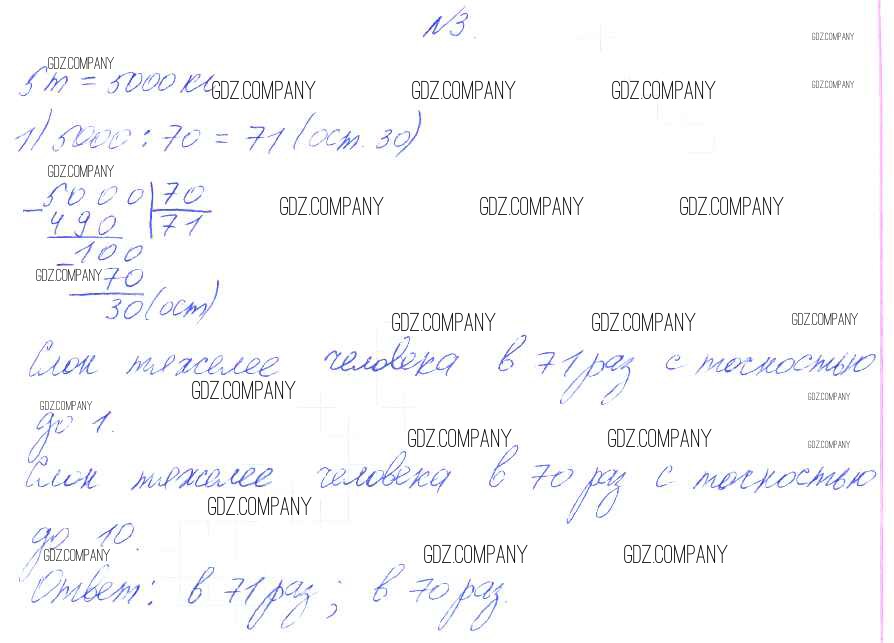 №3.
GDZ.COMPANY
GDZ.COMPANY
5т = 5000 кг
GDZ.COMPANY GDZ.COMPANY GDZ.COMPANY GDZ.COMPANY
1) 5000 : 70 = 71 (ост. 30)
GDZ.COMPANY
5000 | 70
GDZ.COMPANY GDZ.COMPANY GDZ.COMPANY
- 490 | 71
- 100
GDZ.COMPANY 70
30 (ост)
GDZ.COMPANY GDZ.COMPANY GDZ.COMPANY
Слон тяжелее человека в 71 раз с точностью
GDZ.COMPANY GDZ.COMPANY
GDZ.COMPANY
до 1.
GDZ.COMPANY GDZ.COMPANY GDZ.COMPANY
Слон тяжелее человека в 70 раз с точностью
GDZ.COMPANY
до 10.
GDZ.COMPANY GDZ.COMPANY GDZ.COMPANY
Ответ: в 71 раз; в 70 раз.